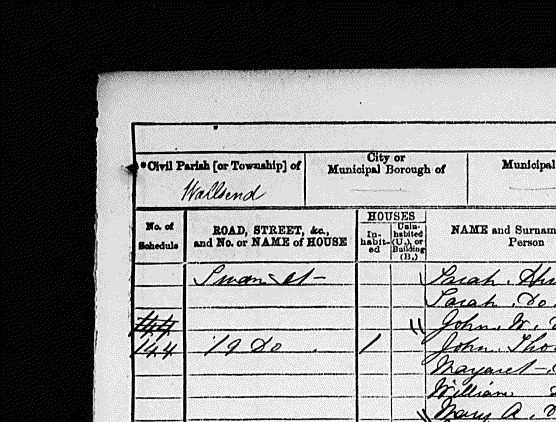 *Civil Parish [or Township] of
City or
Municipal Borough of
Municipal
Wallsend
No. of
Schedule
ROAD, STREET, &c.,
and No. or NAME of HOUSE
HOUSES
In-
habit-
ed
Unin-
habited
(U.), or
Building
(B.)
NAME and Surnam
Person
Swan St
Sarah
Sarah Do
144
John W.
144 19 Do 1 John Tho
Margaret
William
Mary A.